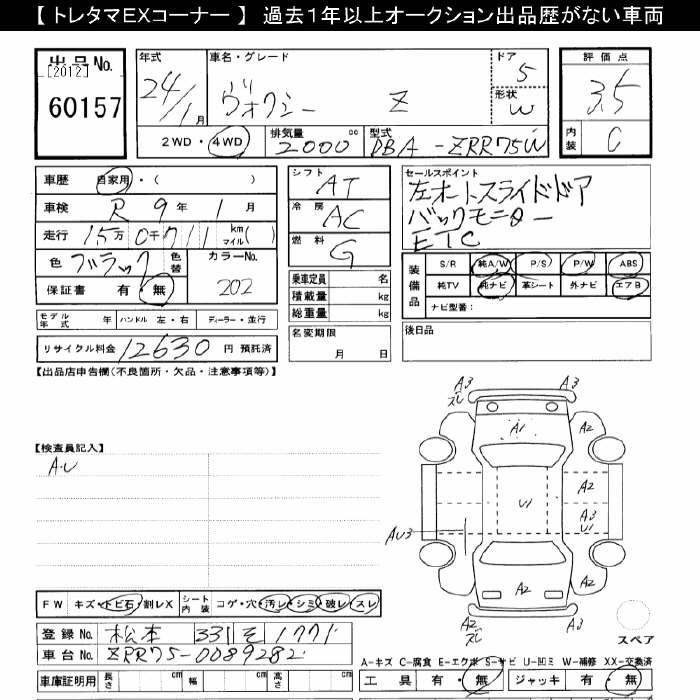 【 トレタマEXコーナー 】 過去１年以上オークション出品歴がない車両
出品 No.
[2012]
60157
年式
24/1月
車名・グレード
ヴォクシー Z
ドア
5
形状
W
評価点
3.5
内装
C
2WD・4WD
排気量
2000 cc
型式
DBA-ZRR75W
車歴 自家用・( )
車検 R 9年 1月
走行 15万0千711 km マイル( )
色 ブラック 色替
カラーNo.
202
保証書 有・無
シフト
AT
冷房
AC
燃料
G
乗車定員 名
積載量 kg
総重量 kg
名変期限
月 日
セールスポイント
左オートスライドドア
バックモニター
ETC
装備品
S/R 純A/W P/S P/W ABS
純TV 純ナビ 革シート 外ナビ エアB
ナビ型番：
後日品
モデル年式 年 ハンドル 左・右 ディーラー・並行
リサイクル料金 12630 円 預託済
【出品店申告欄(不良箇所・欠品・注意事項等)】
【検査員記入】
A・U
A3
スレ
A3
A2
A1
A2
A2
U1
A3
U1
AU3
A2
A2
A2
スレ
A3
スペア
FW キズ・トビ石・割レX シート内装 コゲ・穴・汚レ・シミ・破レ・スレ
登録 No. 松本 331 そ 1771
車台 No. ZRR75-0089282
A-キズ C-腐食 E-エクボ S-サビ U-凹ミ W-補修 XX-交換済
車庫証明用 長さ cm 幅 cm 高さ cm
工具 有・無 ジャッキ 有・無